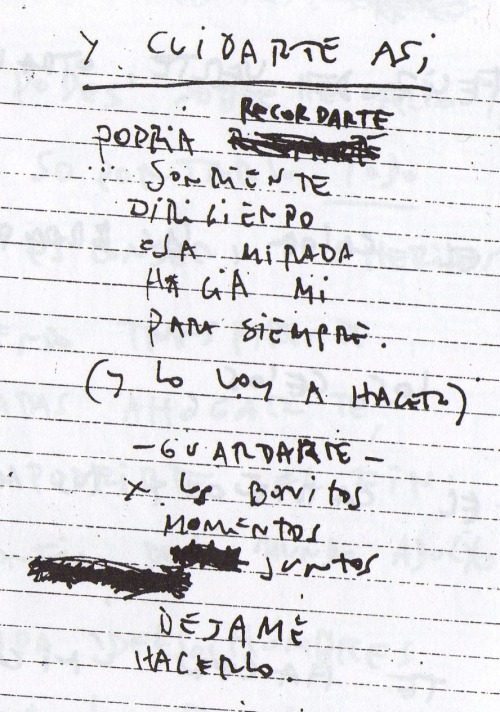 Y CUIDARTE ASI,
RECORDARTE
PODRIA
SONRIENTE
DIRIGIENDO
ESA MIRADA
HACIA MI
PARA SIEMPRE.
(Y LO VOY A HACER)
-GUARDARTE-
X LOS BONITOS
MOMENTOS
JUNTOS
DEJAME
HACERLO.